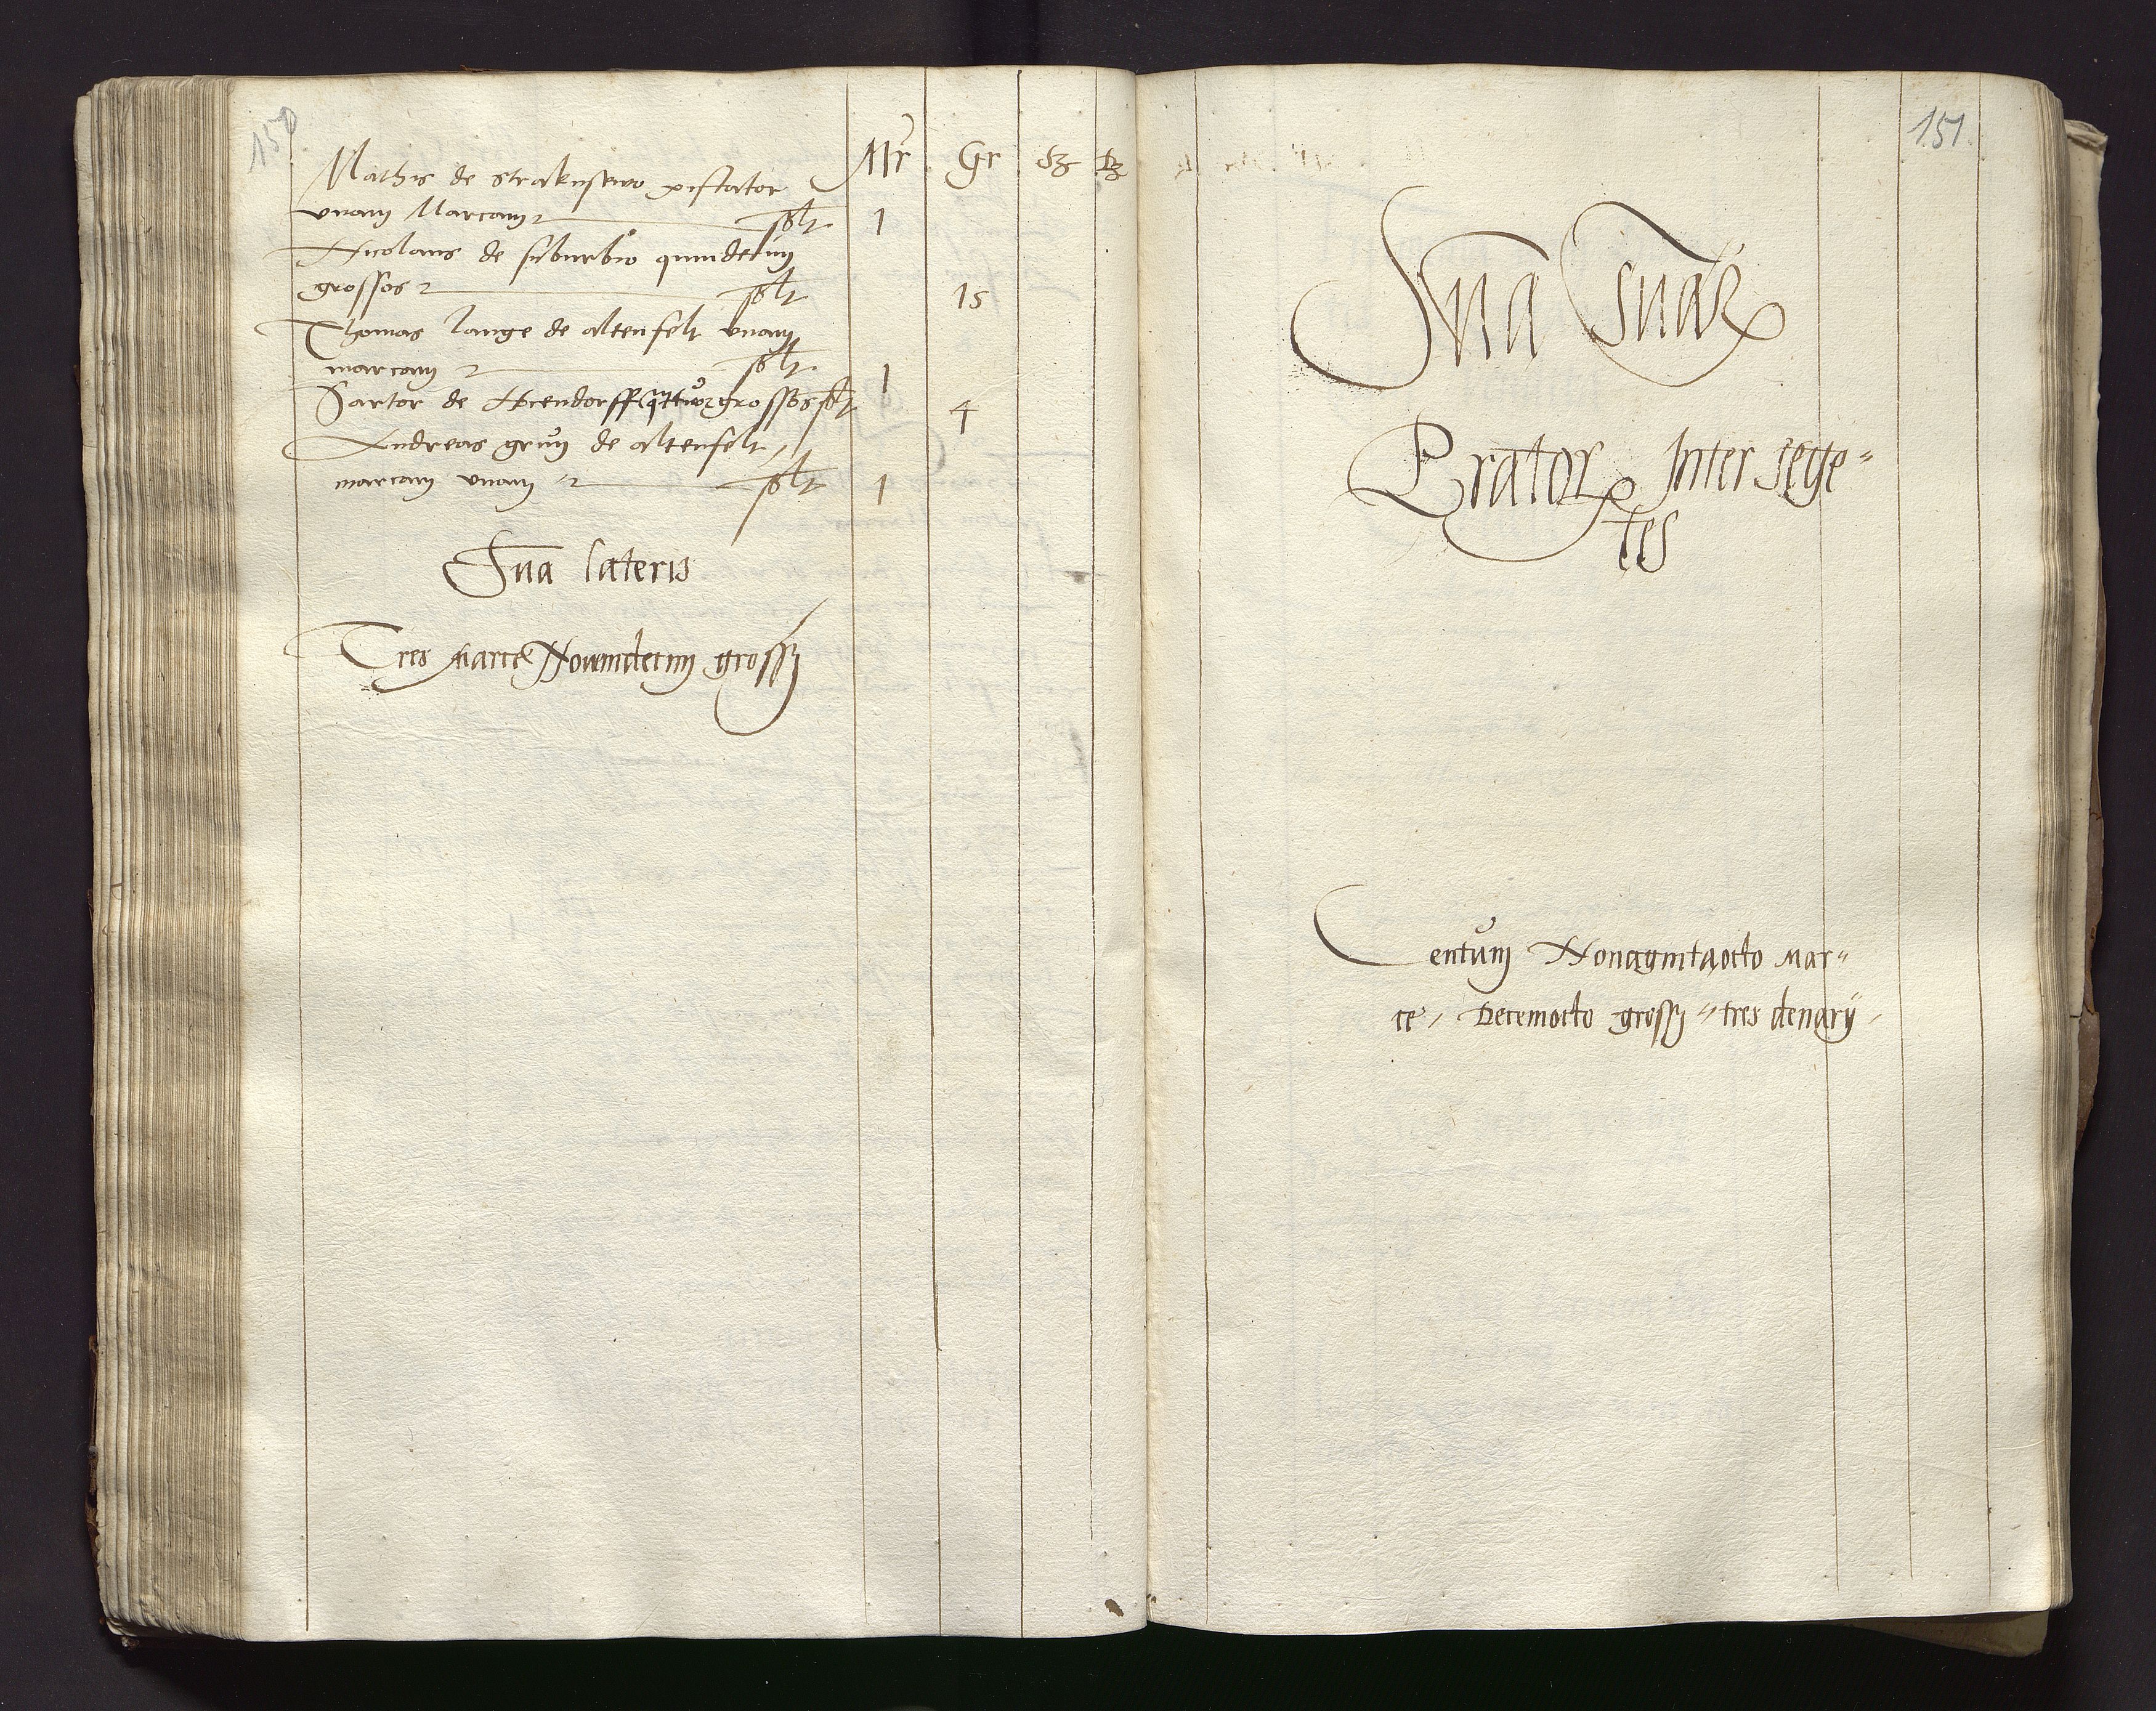 150
Mr Gr ß ß
Mathis de strakusewo piscator
vnam Marcam sol't 1
Nicolaus de suburbio quindecim
grossos sol't 15
Thomas lange de altenfelt vnam
marcam sol't 1
Sartor de Hoendorff q̃ttuor grossos sol't 4
Andreas grün de altenfelt
marcam vnam sol't 1
Sũa lateris
Tres marce Novemdecim grossy
151.
Sũa sũaꝝ
Pratoꝝ Inter sege-
tes
Centum Nonagintaocto mar-
ce, Decemocto grossy tres denarij